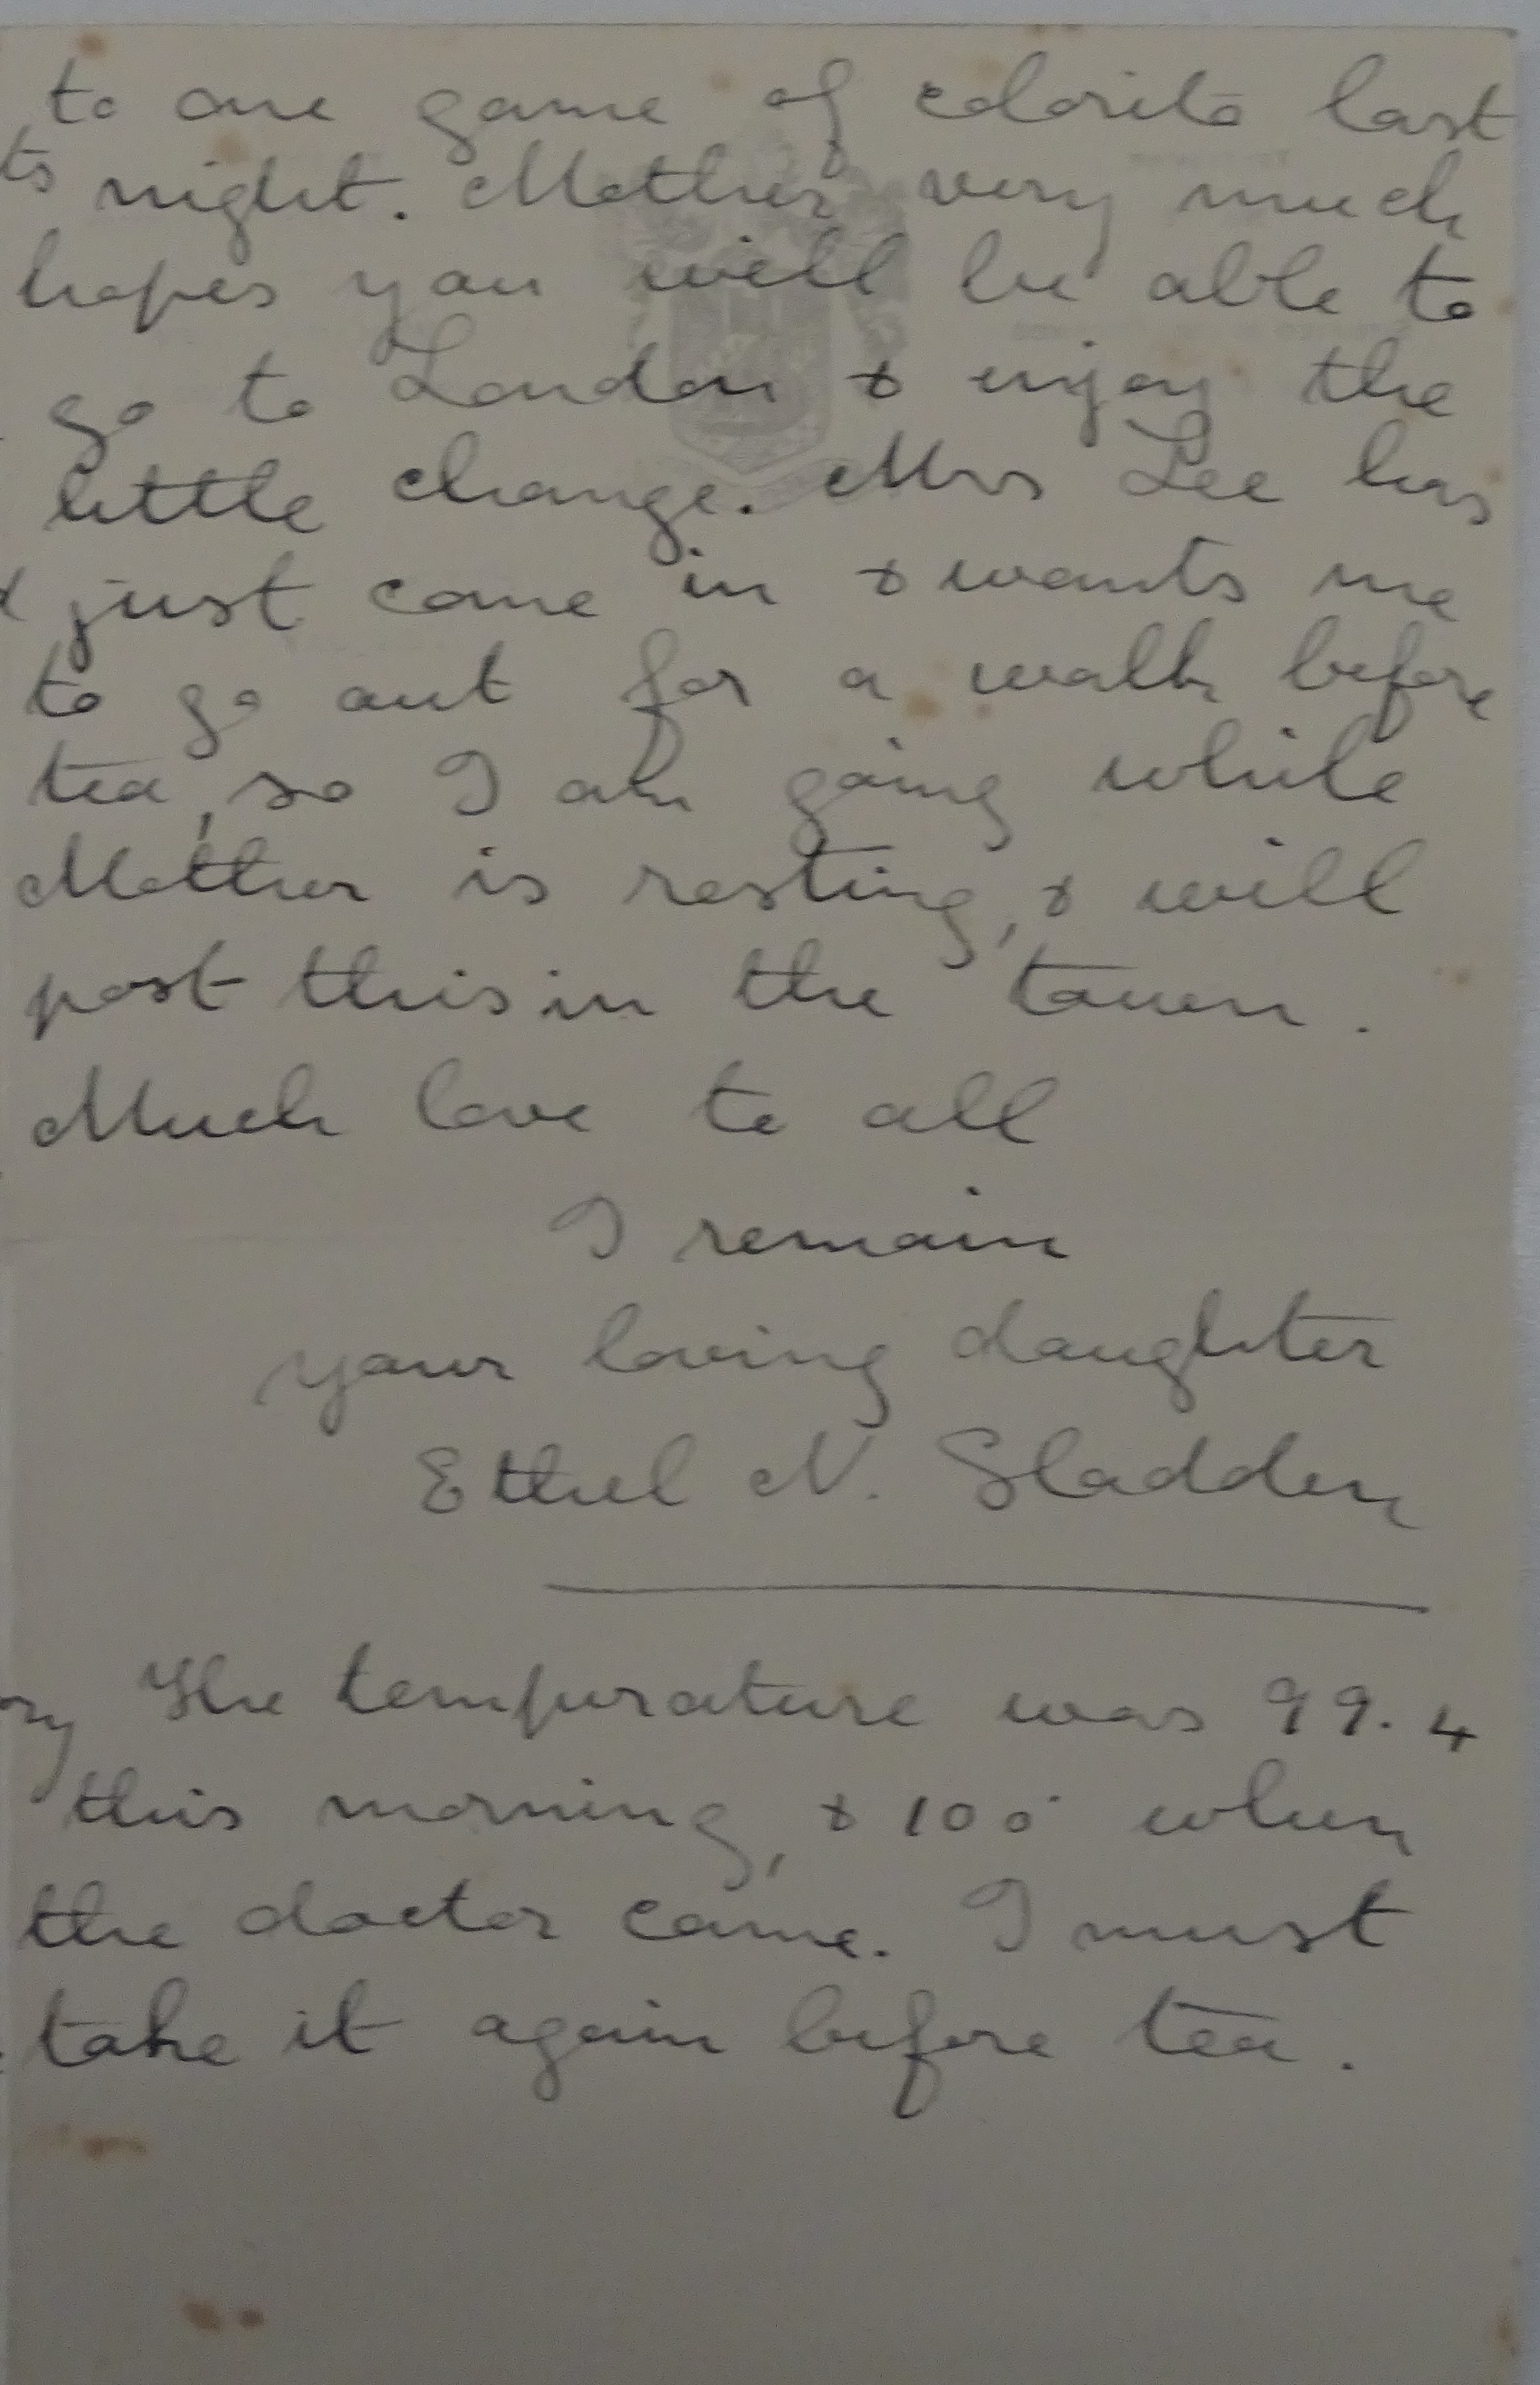 to one game of colorito last
night. Mother very much
hopes you will be able to
go to London & enjoy the
little change. Mrs Lee has
just come in & wants me
to go out for a walk before
tea, so I am going while
Mother is resting, & will
post this in the town.
Much love to all
I remain
your loving daughter
Ethel N. Sladden
The temperature was 99.4
this morning, & 100° when
the doctor came. I must
take it again before tea.